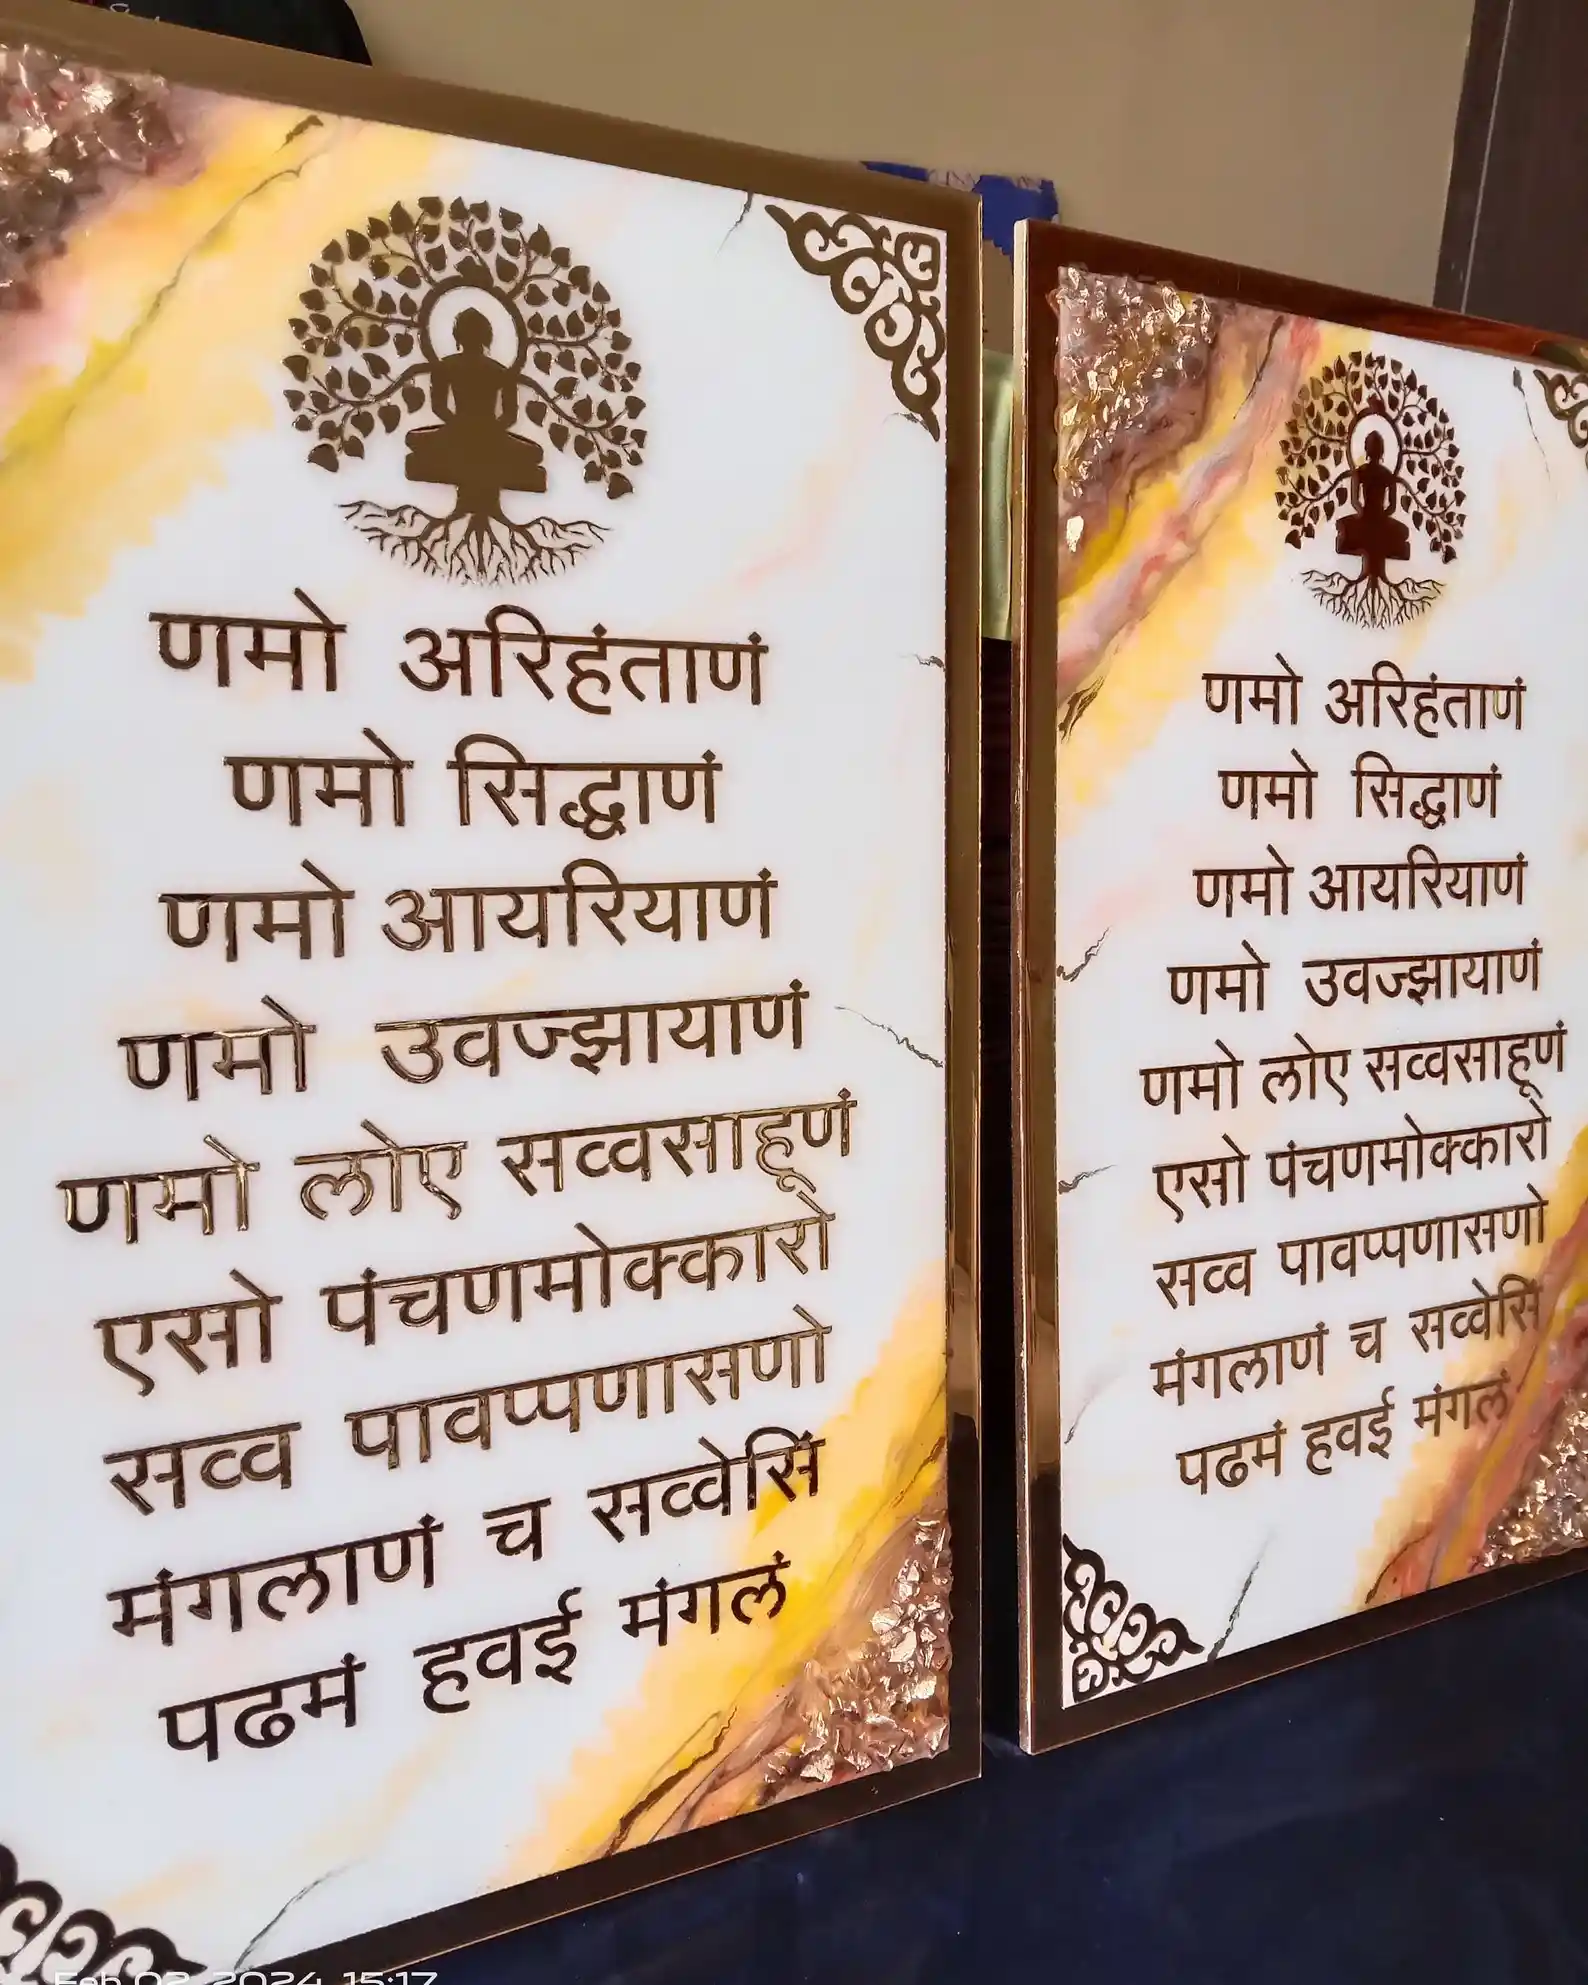 णमो अरिहंताणं
णमो सिद्धाणं
णमो आयरियाणं
णमो उवज्झायाणं
णमो लोए सव्वसाहूणं
एसो पंचणमोक्कारो
सव्व पावप्पणासणो
मंगलाणं च सव्वेसिं
पढमं हवई मंगलं
णमो अरिहंताणं
णमो सिद्धाणं
णमो आयरियाणं
णमो उवज्झायाणं
णमो लोए सव्वसाहूणं
एसो पंचणमोक्कारो
सव्व पावप्पणासणो
मंगलाणं च सव्वेसिं
पढमं हवई मंगलं
Feb 02, 2024, 15:17